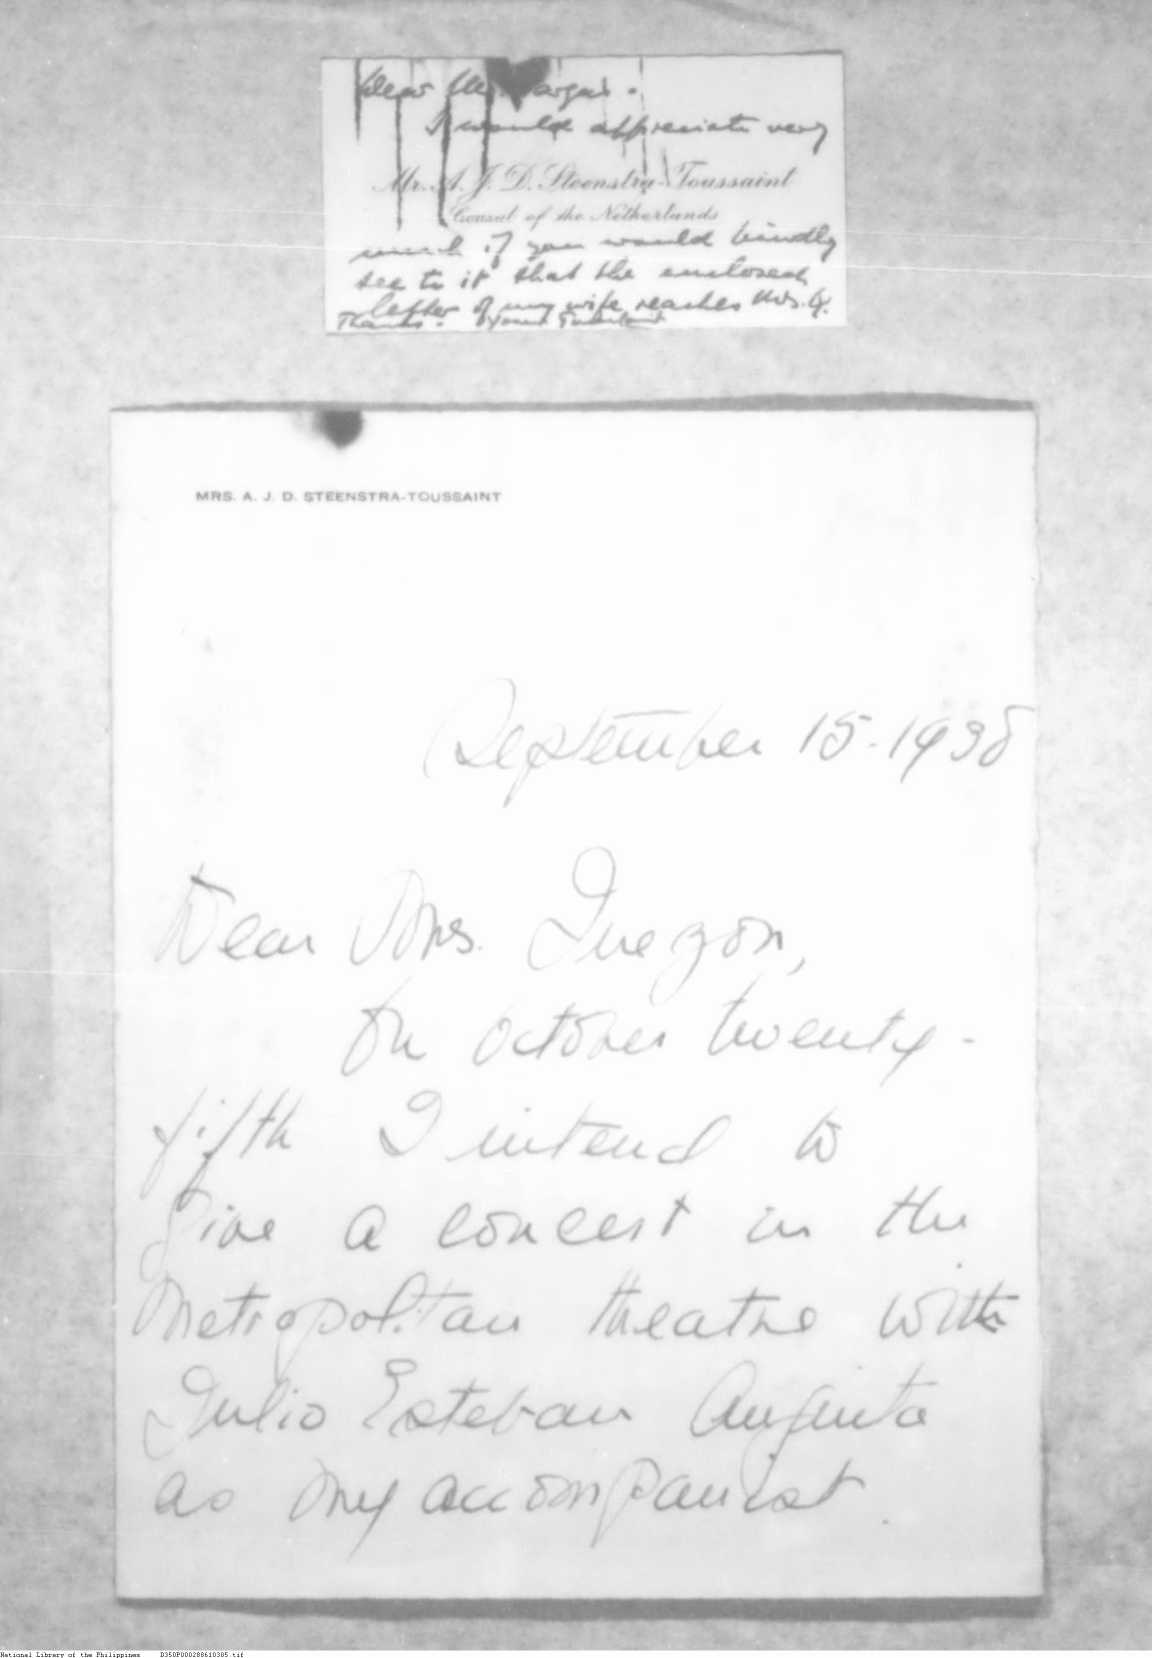 Dear Mr. Vargas.
I would appreciate very
Mr. A. J. D. Steenstra-Toussaint
Consul of the Netherlands
much if you would kindly
see to it that the enclosed
letter of my wife reaches Mrs. Q.
Thanks.
MRS. A. J. D. STEENSTRA-TOUSSAINT
September 15-1938
Dear Mrs. Quezon,
On October twenty-
fifth I intend to
give a concert in the
Metropolitan theatre with
Julio Esteban Anguita
as my accompanist.
National Library of the Philippines D350P000288610305.tif